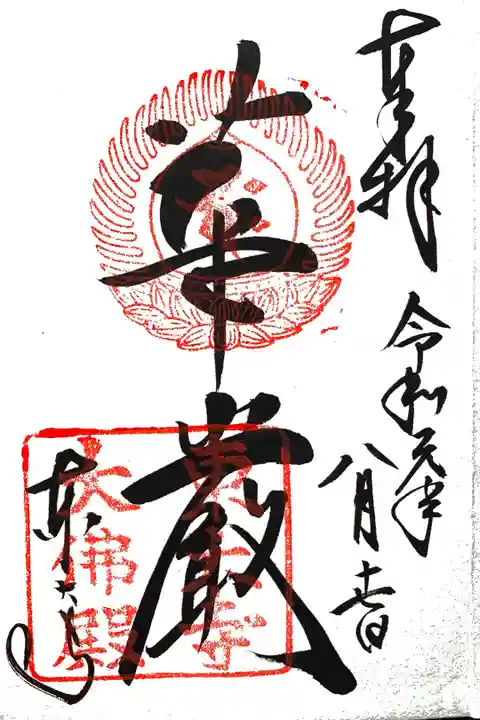 奉拝
令和元年
八月
華厳
東大寺
東大寺
大佛殿